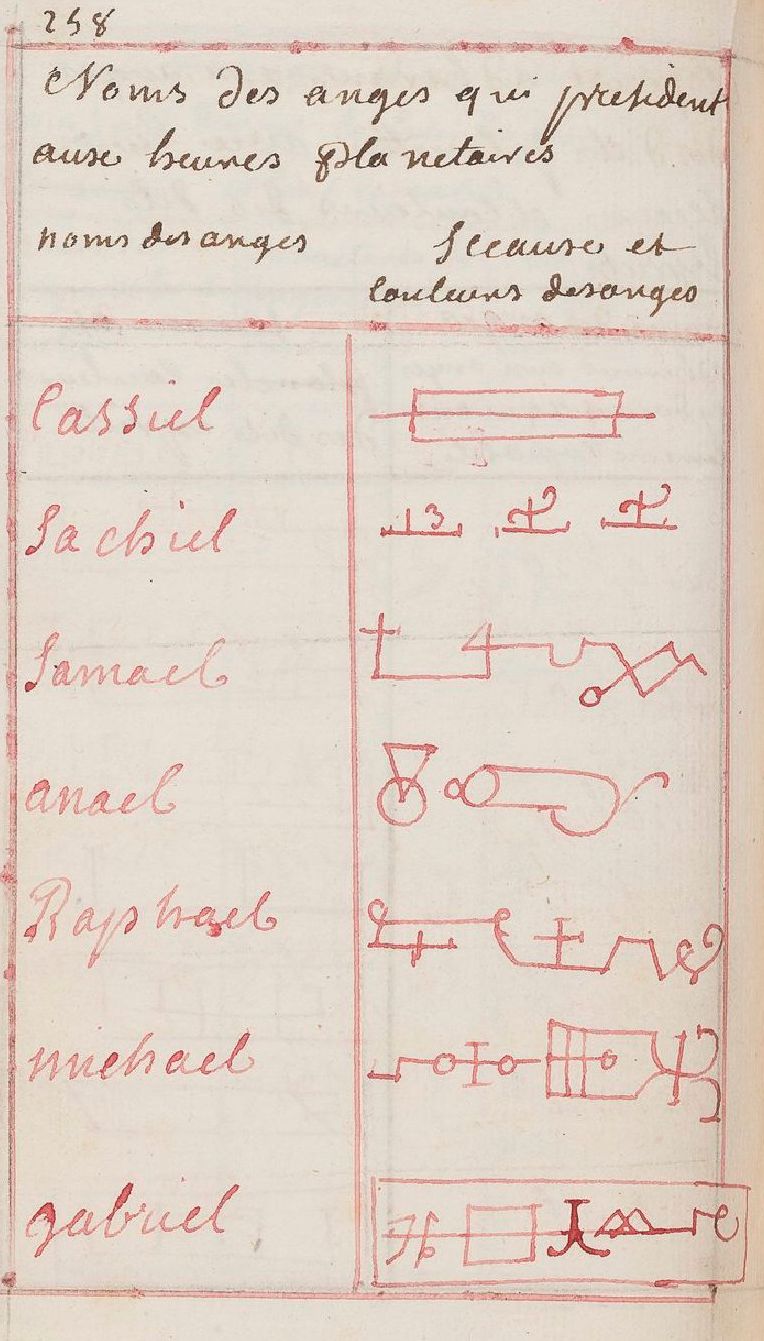 258
Noms des anges qui president
auxe heures planetaires
noms des anges
Sceauxe et
Couleurs des anges
Cassiel
Sachiel
Samael
anael
Raphael
michael
gabriel